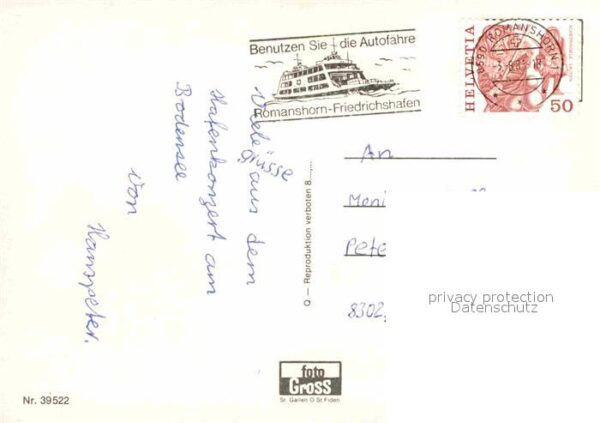 Benutzen Sie die Autofähre
Romanshorn-Friedrichshafen
8590 ROMANSHORN
HELVETIA
50
Viele Grüsse
aus dem
Hafenkonzert am
Bodensee
von
Hanspeter.
Q — Reproduktion verboten 8......
An
Moni
Pete
8302
privacy protection
Datenschutz
foto
Gross
St. Gallen O St Fiden
Nr. 39522